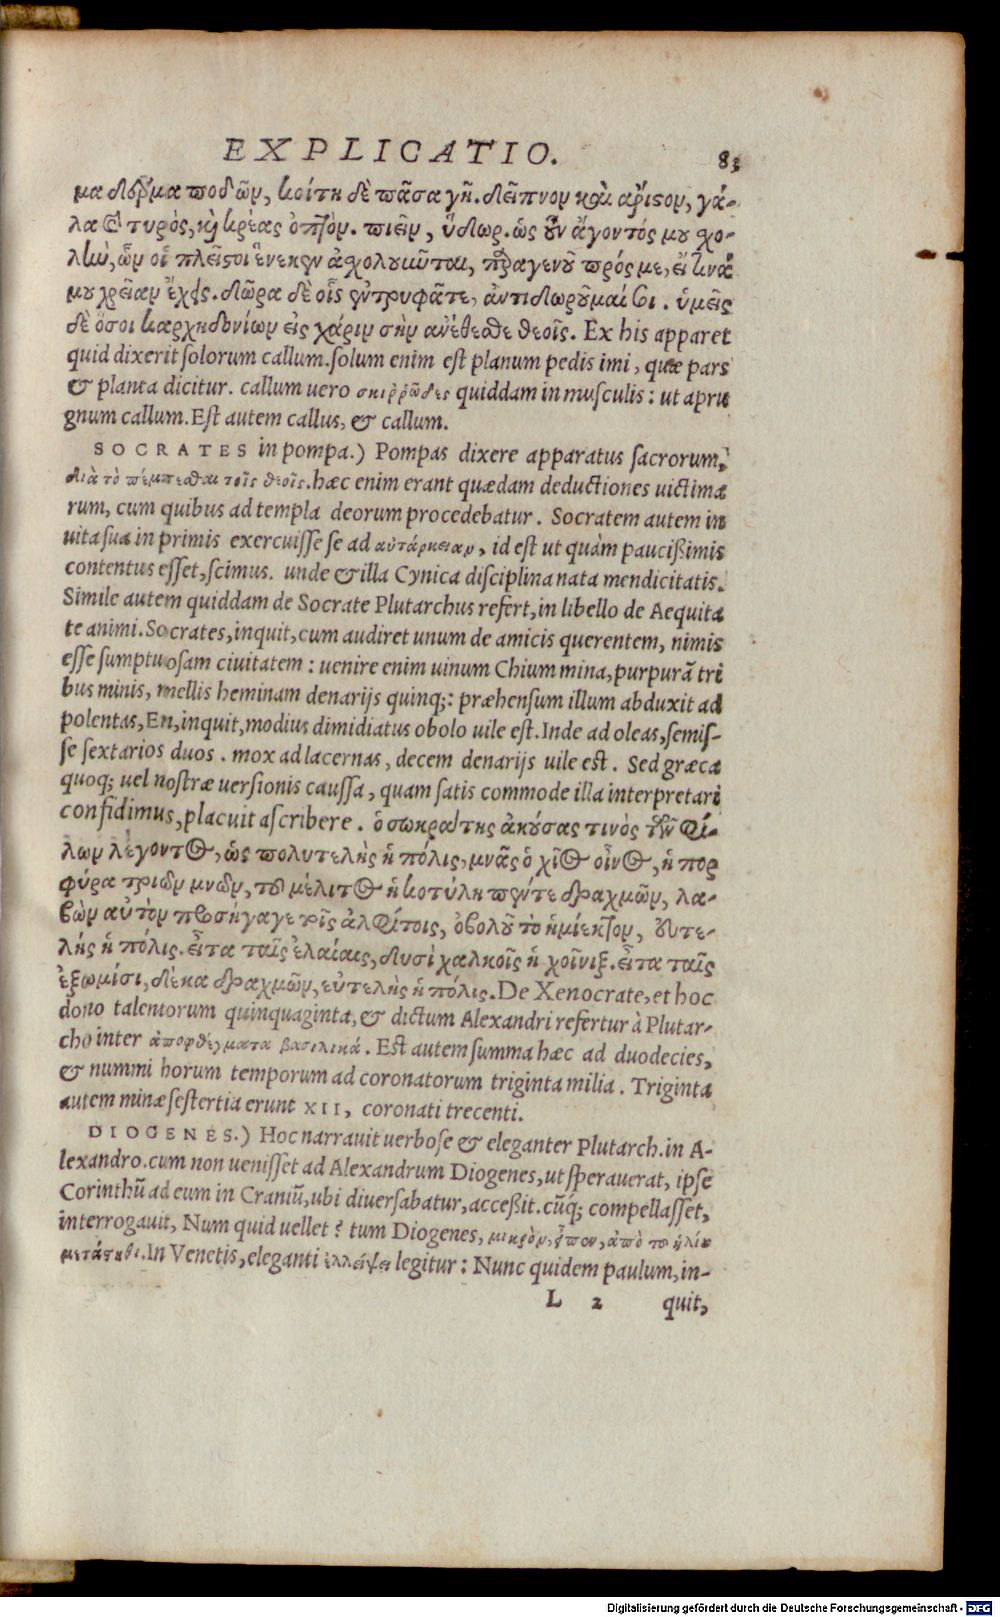 EXPLICATIO. 83
μα δέρμα ποδῶν, κοίτη δὲ πᾶσα γῆ. δεῖπνον καὶ ἄριστον, γά-
λα καὶ τυρὸς, καὶ κρέας ὀπτὸν. πιεῖν, ὕδωρ. ὡς οὖν ἄγοντός μου χο-
λὴν, ὧν οἱ πλεῖστοι ἕνεκεν ἀχολουμῦται, παραγενοῦ πρός με, εἴ τινά
μου χρείαν ἔχεις. δῶρα δὲ οἷς ἐντρυφᾶτε, ἀντιδωροῦμαί σοι. ὑμεῖς
δὲ ὅσοι καρχηδονίων εἰς χάριν σὴν ἀνέθεσθε θεοῖς. Ex his apparet
quid dixerit solorum callum. solum enim est planum pedis imi, quæ pars
& planta dicitur. callum uero σκιῤῥῶδες quiddam in musculis: ut apru
gnum callum. Est autem callus, & callum.
SOCRATES in pompa.) Pompas dixere apparatus sacrorum,
διὰ τὸ πέμπεσθαι τοῖς θεοῖς. hæc enim erant quædam deductiones uictima
rum, cum quibus ad templa deorum procedebatur. Socratem autem in
uita sua in primis exercuisse se ad αὐτάρκειαν, id est ut quàm paucißimis
contentus esset, scimus. unde & illa Cynica disciplina nata mendicitatis.
Simile autem quiddam de Socrate Plutarchus refert, in libello de Aequita
te animi. Socrates, inquit, cum audiret unum de amicis querentem, nimis
esse sumptuosam ciuitatem: uenire enim uinum Chium mina, purpurã tri
bus minis, mellis heminam denarijs quinq;: præhensum illum abduxit ad
polentas, En, inquit, modius dimidiatus obolo uile est. Inde ad oleas, semis-
se sextarios duos. mox ad lacernas, decem denarijs uile est. Sed græca
quoq; uel nostræ uersionis caussa, quam satis commode illa interpretari
confidimus, placuit ascribere. ὁ σωκράτης ἀκούσας τινὸς τῶν φί-
λων λέγοντος, ὡς πολυτελὴς ἡ πόλις, μνᾶς ὁ χῖος οἶνος, ἡ πορ
φύρα τριῶν μνῶν, τοῦ μέλιτος ἡ κοτύλη πέντε δραχμῶν, λα-
βὼν αὐτὸν προσήγαγε τοῖς ἀλφίτοις, ὀβολοῦ τὸ ἡμίεκτον, εὐτε-
λὴς ἡ πόλις. εἶτα ταῖς ἐλαίαις, δυσὶ χαλκοῖς ἡ χοῖνιξ. εἶτα ταῖς
ἐξωμίσι, δέκα δραχμῶν, εὐτελὴς ἡ πόλις. De Xenocrate, et hoc
dono talentorum quinquaginta, & dictum Alexandri refertur à Plutar-
cho inter ἀποφθέγματα βασιλικά. Est autem summa hæc ad duodecies,
& nummi horum temporum ad coronatorum triginta milia. Triginta
autem minæ sestertia erunt XII, coronati trecenti.
DIOGENES.) Hoc narrauit uerbose & eleganter Plutarch. in A-
lexandro. cum non uenisset ad Alexandrum Diogenes, ut sperauerat, ipse
Corinthũ ad eum in Craniũ, ubi diuersabatur, acceßit. cũq́; compellasset,
interrogauit, Num quid uellet? tum Diogenes, μικρὸν, εἶπον, ἀπὸ τοῦ ἡλίου
μετάστηθι. In Venetis, eleganti ἐλλείψει legitur: Nunc quidem paulum, in-
L 2 quit,
Digitalisierung gefördert durch die Deutsche Forschungsgemeinschaft - DFG